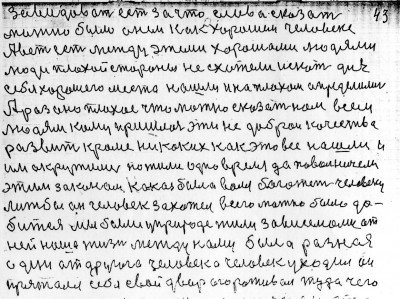 43
заметдоват ест за что слова сказат
можно было о нем как хорошим человеке
А вет ест между этими хорошими людями
люди плохой стороны не схотели искат для
себя хорошего места нашли и на плохом определили
А раз оно плохое что можно сказат нам всем
людям кому пришлос эти не доброи качества
развит кроме ни коких как это все нашли и
им окружили пожили одно время да поволничели
этим законам какая была воля бы может человеку
лиж бы он человек захотел всего можно было до-
битса мы были у природе жили зависемоми от
ней наша жизн между нами была разная
один от другого человека человек уходил он
прятал себя свой двор огороживал туда чего